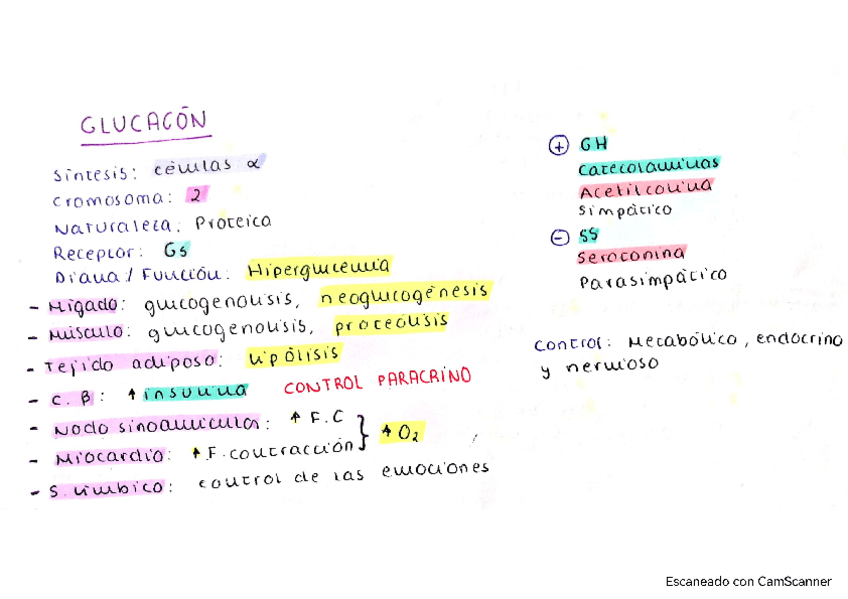 GLUCAGÓN
Síntesis: células α
Cromosoma: 2
Naturaleza: Proteica
Receptor: Gs
Diana / Función: Hiperglucemia
- Hígado: glucogenolisis, neoglucogénesis
- Músculo: glucogenolisis, proteólisis
- Tejido adiposo: lipólisis
- C. β: ↑ insulina CONTROL PARACRINO
- Nodo sinoauricular: ↑ F.C
- Miocardio: ↑ F. contracción } ↑ O₂
- S. límbico: control de las emociones
⊕ GH
Catecolaminas
Acetilcolina
Simpático
⊖ SS
Serotonina
Parasimpático
Control: Metabólico, endocrino
y nervioso
Escaneado con CamScanner